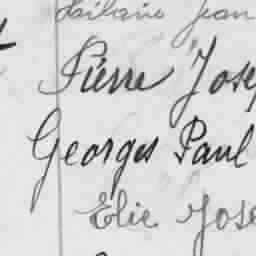 Hilaire Jean
Pierre Jose
Georges Paul
Elie Jose